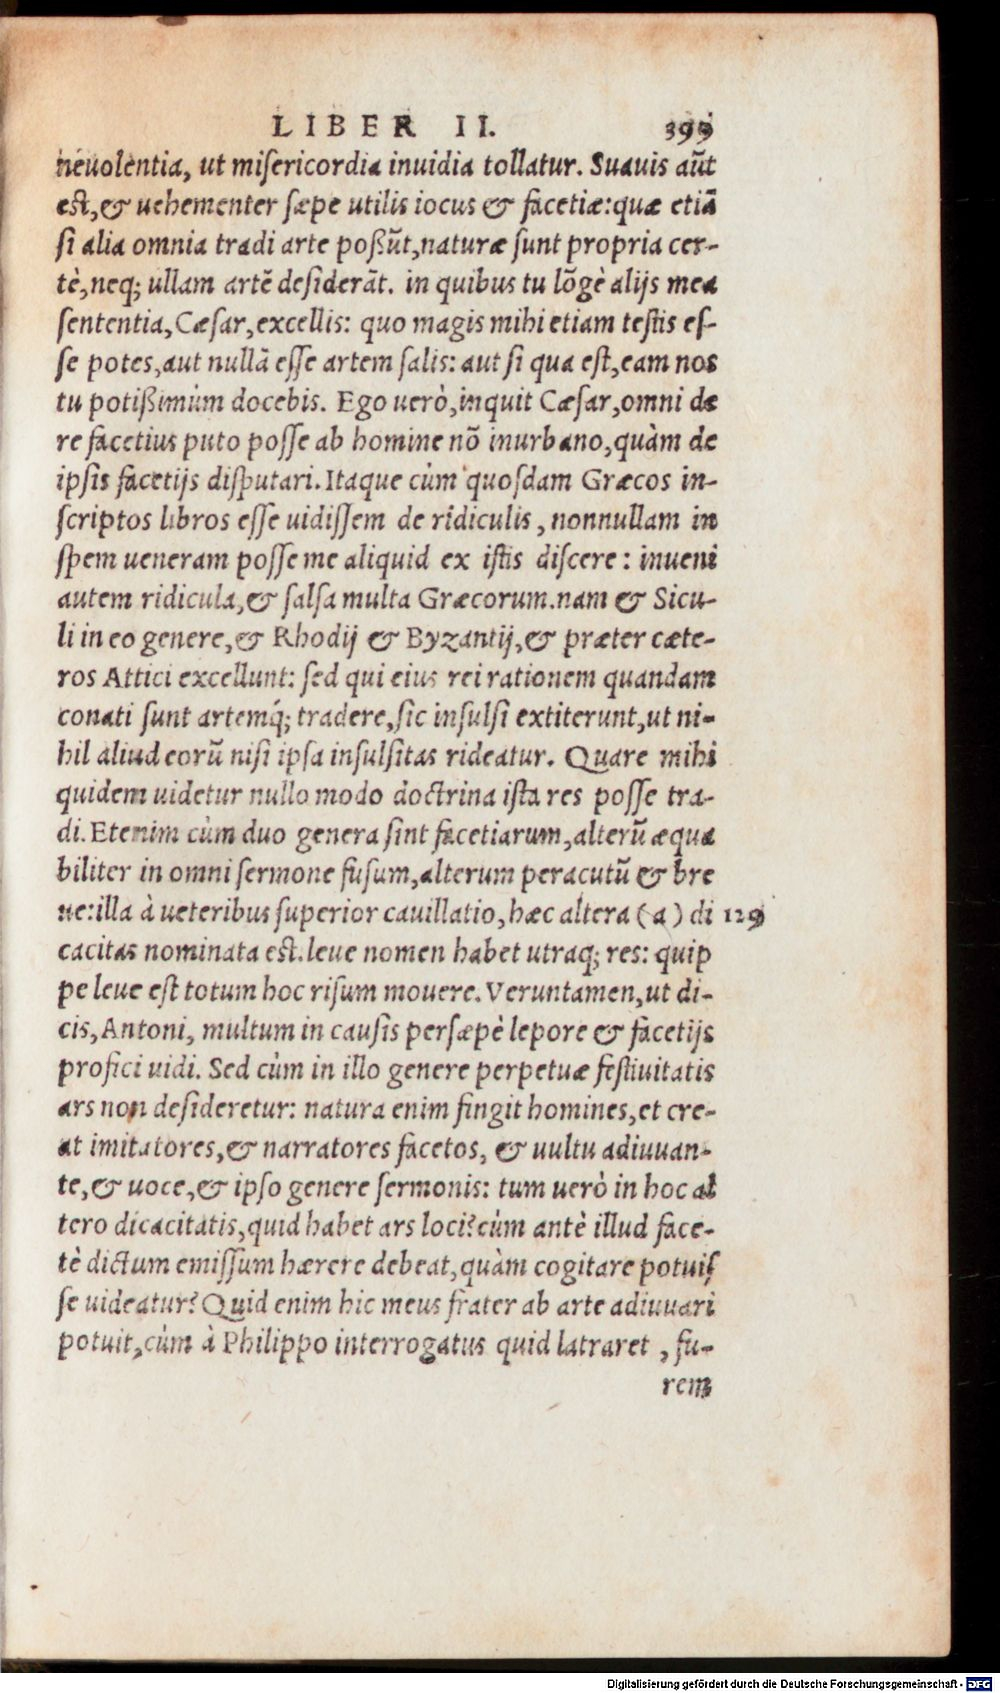 LIBER II. 399
neuolentia, ut misericordia inuidia tollatur. Suauis aūt
est, & uehementer sæpe utilis iocus & facetiæ: quæ etiā
si alia omnia tradi arte poßūt, naturæ sunt propria cer-
tè, neq; ullam artē desiderāt. in quibus tu lōgè alijs mea
sententia, Cæsar, excellis: quo magis mihi etiam testis es-
se potes, aut nullā esse artem salis: aut si qua est, eam nos
tu potißimùm docebis. Ego uerò, inquit Cæsar, omni de
re facetius puto posse ab homine nō inurbano, quàm de
ipsis facetijs disputari. Itaque cùm quosdam Græcos in-
scriptos libros esse uidissem de ridiculis, nonnullam in
spem ueneram posse me aliquid ex istis discere: inueni
autem ridicula, & salsa multa Græcorum. nam & Sicu-
li in eo genere, & Rhodij & Byzantij, & præter cæte-
ros Attici excellunt: sed qui eius rei rationem quandam
conati sunt artemq́; tradere, sic insulsi extiterunt, ut ni-
hil aliud eorū nisi ipsa insulsitas rideatur. Quare mihi
quidem uidetur nullo modo doctrina ista res posse tra-
di. Etenim cùm duo genera sint facetiarum, alterū æqua
biliter in omni sermone fusum, alterum peracutū & bre
ue: illa à ueteribus superior cauillatio, hæc altera (a) di 129
cacitas nominata est. leue nomen habet utraq; res: quip
pe leue est totum hoc risum mouere. Veruntamen, ut di-
cis, Antoni, multum in causis persæpè lepore & facetijs
profici uidi. Sed cùm in illo genere perpetuæ festiuitatis
ars non desideretur: natura enim fingit homines, et cre-
at imitatores, & narratores facetos, & uultu adiuuan-
te, & uoce, & ipso genere sermonis: tum uerò in hoc al
tero dicacitatis, quid habet ars loci? cùm antè illud face-
tè dictum emissum hærere debeat, quàm cogitare potuis
se uideatur? Quid enim hic meus frater ab arte adiuuari
potuit, cùm à Philippo interrogatus quid latraret, fu-
rem
Digitalisierung gefördert durch die Deutsche Forschungsgemeinschaft - DFG